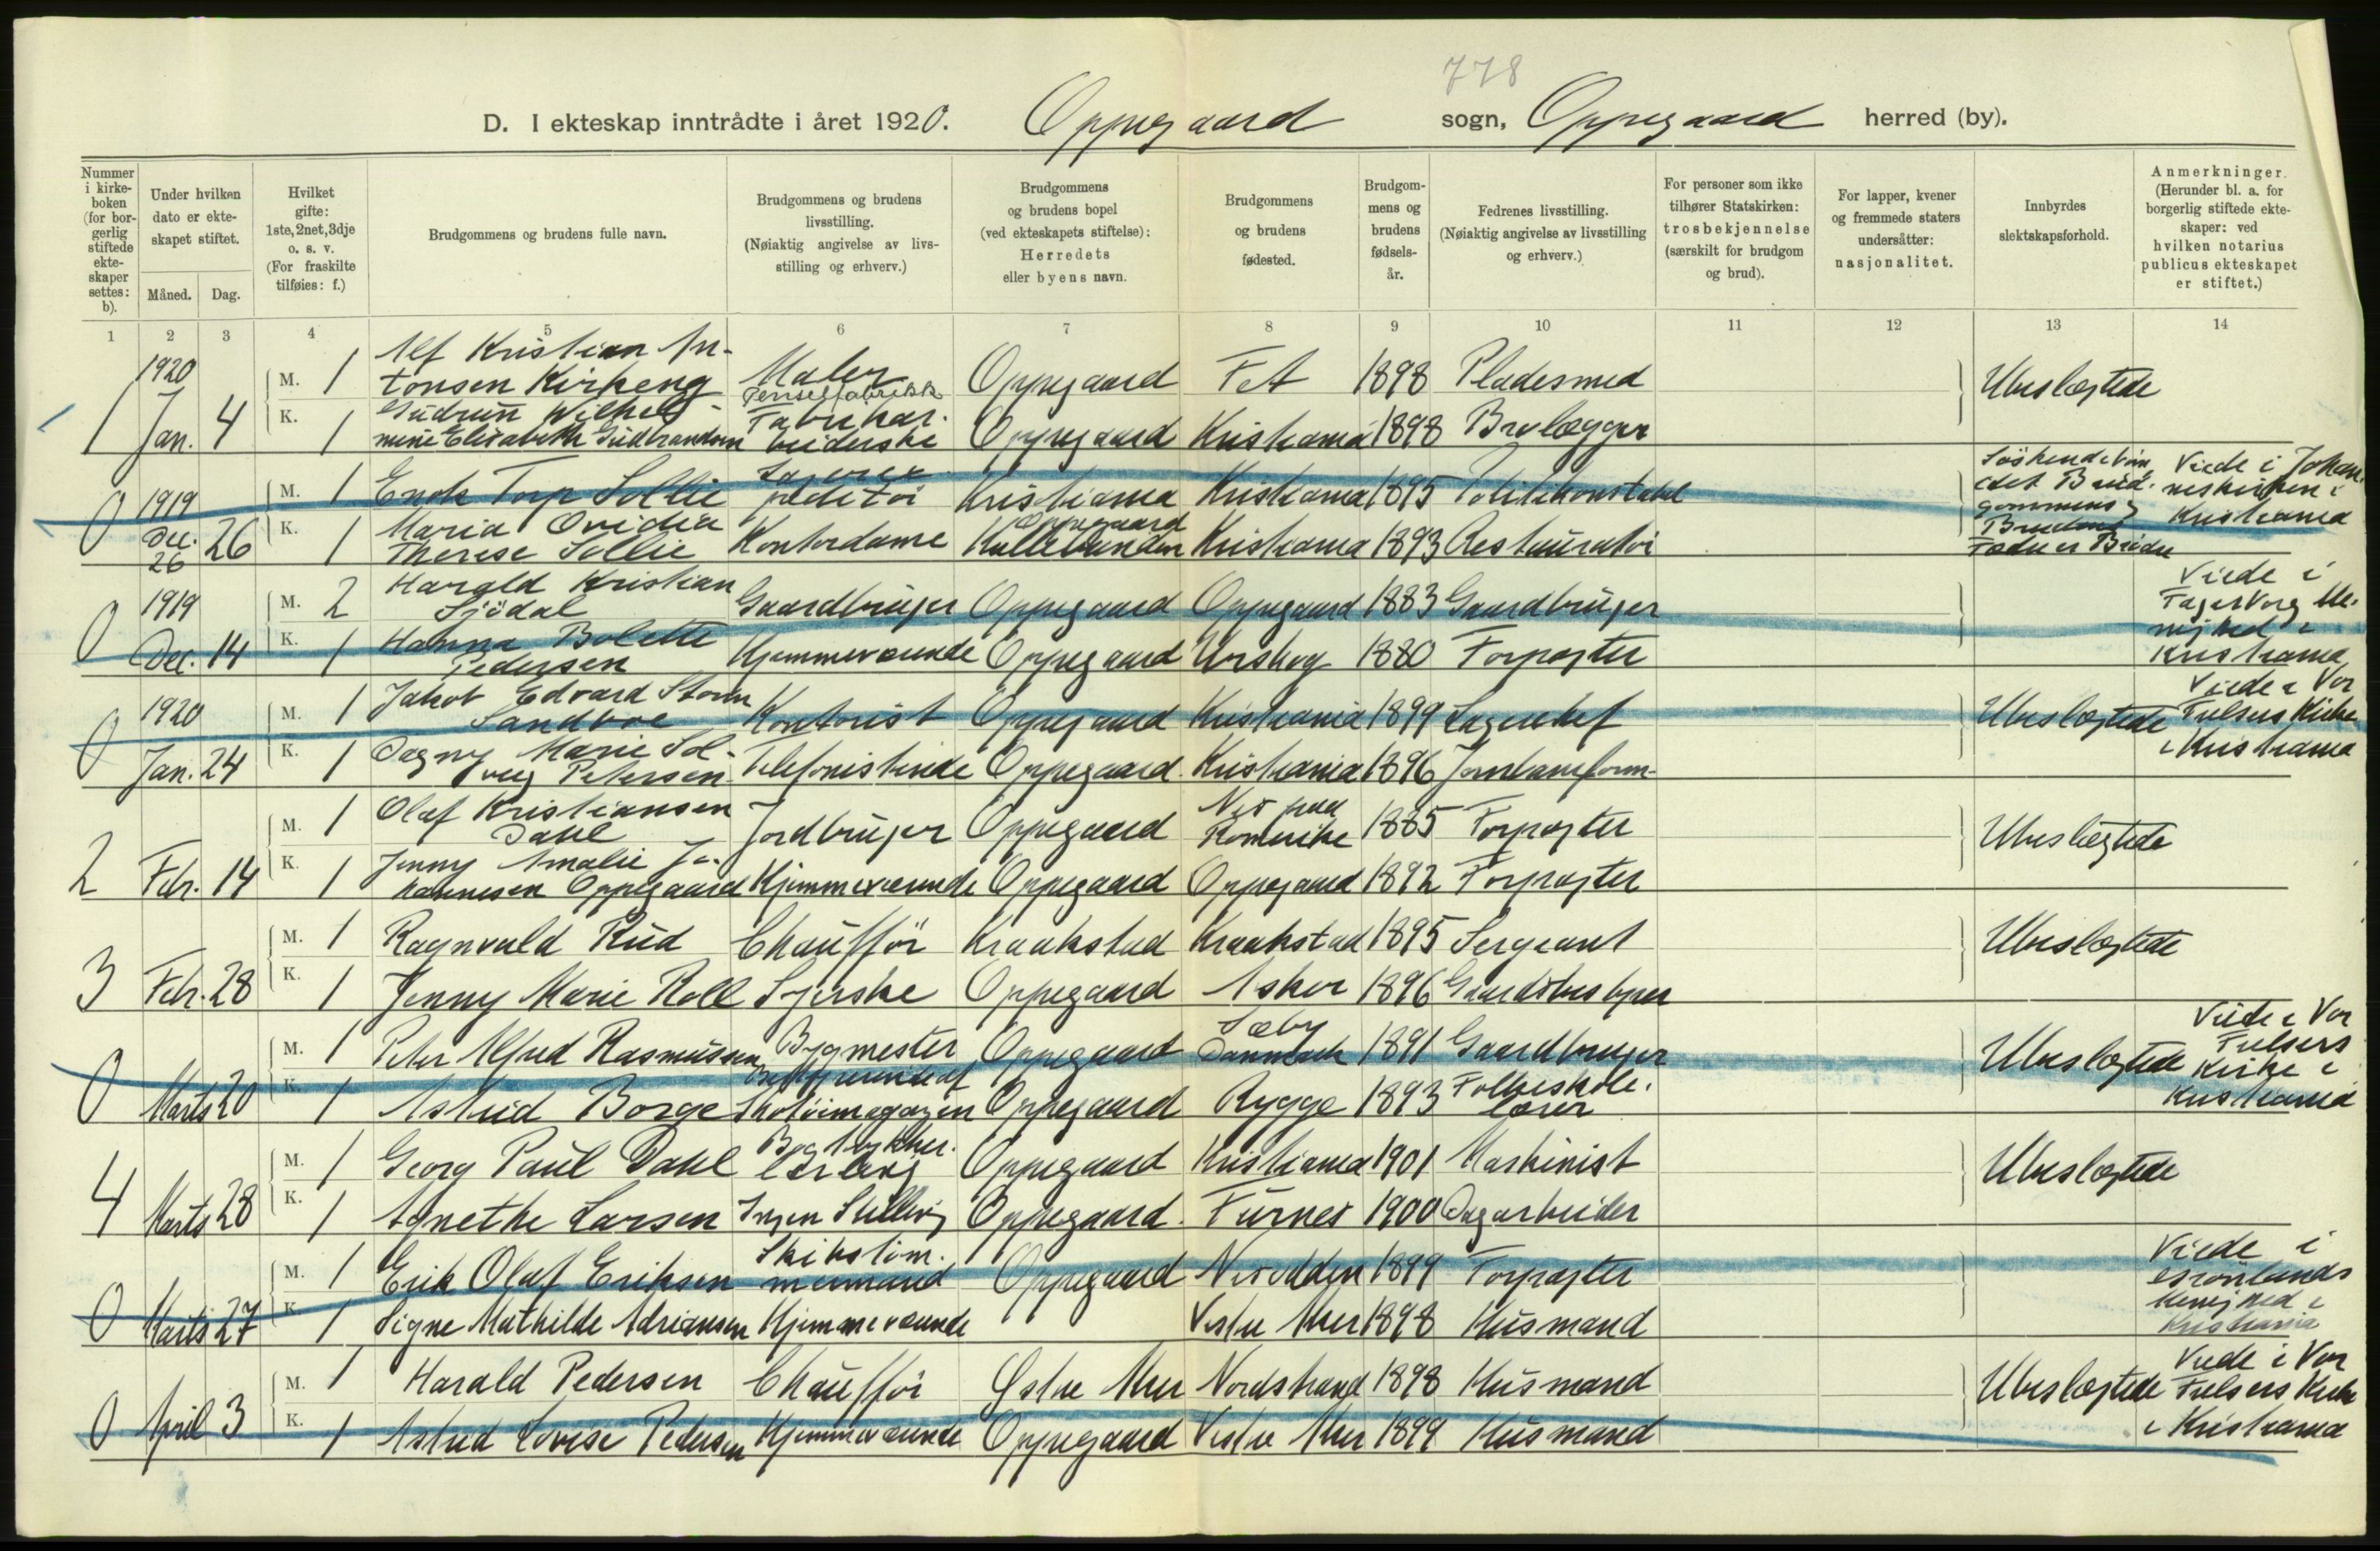 778
D. I ekteskap inntrådte i året 1920. Oppegaard sogn, Oppegaard herred (by).
Nummer i kirkeboken (for borgerlig stiftede ekteskaper settes: b).
Under hvilken dato er ekteskapet stiftet.
Måned. Dag.
Hvilket gifte: 1ste, 2net, 3dje o. s. v. (For fraskilte tilføies: f.)
Brudgommens og brudens fulle navn.
Brudgommens og brudens livsstilling. (Nøiaktig angivelse av livsstilling og erhverv.)
Brudgommens og brudens bopel (ved ekteskapets stiftelse): Herredets eller byens navn.
Brudgommens og brudens fødested.
Brudgommens og brudens fødselsår.
Fedrenes livsstilling. (Nøiaktig angivelse av livsstilling og erhverv.)
For personer som ikke tilhører Statskirken: trosbekjennelse (særskilt for brudgom og brud).
For lapper, kvener og fremmede staters undersåtter: nasjonalitet.
Innbyrdes slektskapsforhold.
Anmerkninger. (Herunder bl. a. for borgerlig stiftede ekteskaper: ved hvilken notarius publicus ekteskapet er stiftet.)
1 2 3 4 5 6 7 8 9 10 11 12 13 14
1 1920 Jan. 4 M. 1 Alf Kristian Antonsen Kirkeng Maler Oppegaard Fet 1898 Pladesmed Ubeslegtede
K. 1 Gudrun Wilhelmine Elisabeth Gudbrandsen Penselfabrikk Fabrikarbeiderske Oppegaard Kristiania 1898 Brolægger
0 1919 Dec. 26 26 M. 1 Enok Torp Sollie Kristiania Kristiania 1895 Politikonstabel Søskendebørn, idet Brudgommens & Brudens Fædre er Brødre Viede i Johanneskirken i Kristiania
K. 1 Maria Ovidia Therese Sollie Kontordame Oppegaard Kullebunden Kristiania 1893 Restauratør
0 1919 Dec. 14 M. 2 Harald Kristian Sjødal Gaardbruger Oppegaard Oppegaard 1883 Gaardbruger Viede i Fagerborg Menighed i Kristiania
K. 1 Hanna Bolette Pedersen Hjemmeværende Oppegaard Urskog 1880 Forpagter
0 1920 Jan. 24 M. 1 Jakob Edvard Storm Sandboe Kontorist Oppegaard Kristiania 1899 Lagerchef Ubeslegtede Viede i Vor Frelsers Kirke i Kristiania
K. 1 Dagny Marie Solveig Petersen Telefonistinde Oppegaard Kristiania 1896 Jernbaneform-
2 Febr. 14 M. 1 Olaf Kristiansen Dahl Jordbruger Oppegaard Romerike 1885 Forpagter Ubeslegtede
K. 1 Jenny Amalie Johannesen Oppegaard Hjemmeværende Oppegaard Oppegaard 1892 Forpagter
3 Febr. 28 M. 1 Ragnvald Rud Chauffør Kraakstad Kraakstad 1895 Sergeant Ubeslegtede
K. 1 Jenny Marie Roll Syerske Oppegaard Asker 1896 Gaardsbestyrer
0 Marts 20 M. 1 Peter Alfred Rasmussen Bygmester Oppegaard Sæby Danmark 1891 Gaardbruger Ubeslegtede Viede i Vor Frelsers Kirke i Kristiania
K. 1 Astrid Borge Bestyrerinde af Skotøimagazin Oppegaard Rygge 1893 Folkeskolelærer
4 Marts 28 M. 1 Georg Paul Dahl Bogtrykkerlærling Oppegaard Kristiania 1901 Maskinist Ubeslegtede
K. 1 Agnethe Larsen Ingen Stilling Oppegaard Furnes 1900 Dagarbeider
0 Marts 27 M. 1 Erik Olaf Eriksen Skibstømmermand Oppegaard Nesodden 1899 Forpagter Viede i Grønlands Menighed i Kristiania
K. 1 Signe Mathilde Adriansen Hjemmeværende Vestre Aker 1898 Husmand
0 April 3 M. 1 Harald Pedersen Chauffør Østre Aker Nordstrand 1898 Husmand Ubeslegtede Viede i Vor Frelsers Kirke i Kristiania
K. 1 Astrid Lovise Pedersen Hjemmeværende Oppegaard Vestre Aker 1899 Husmand